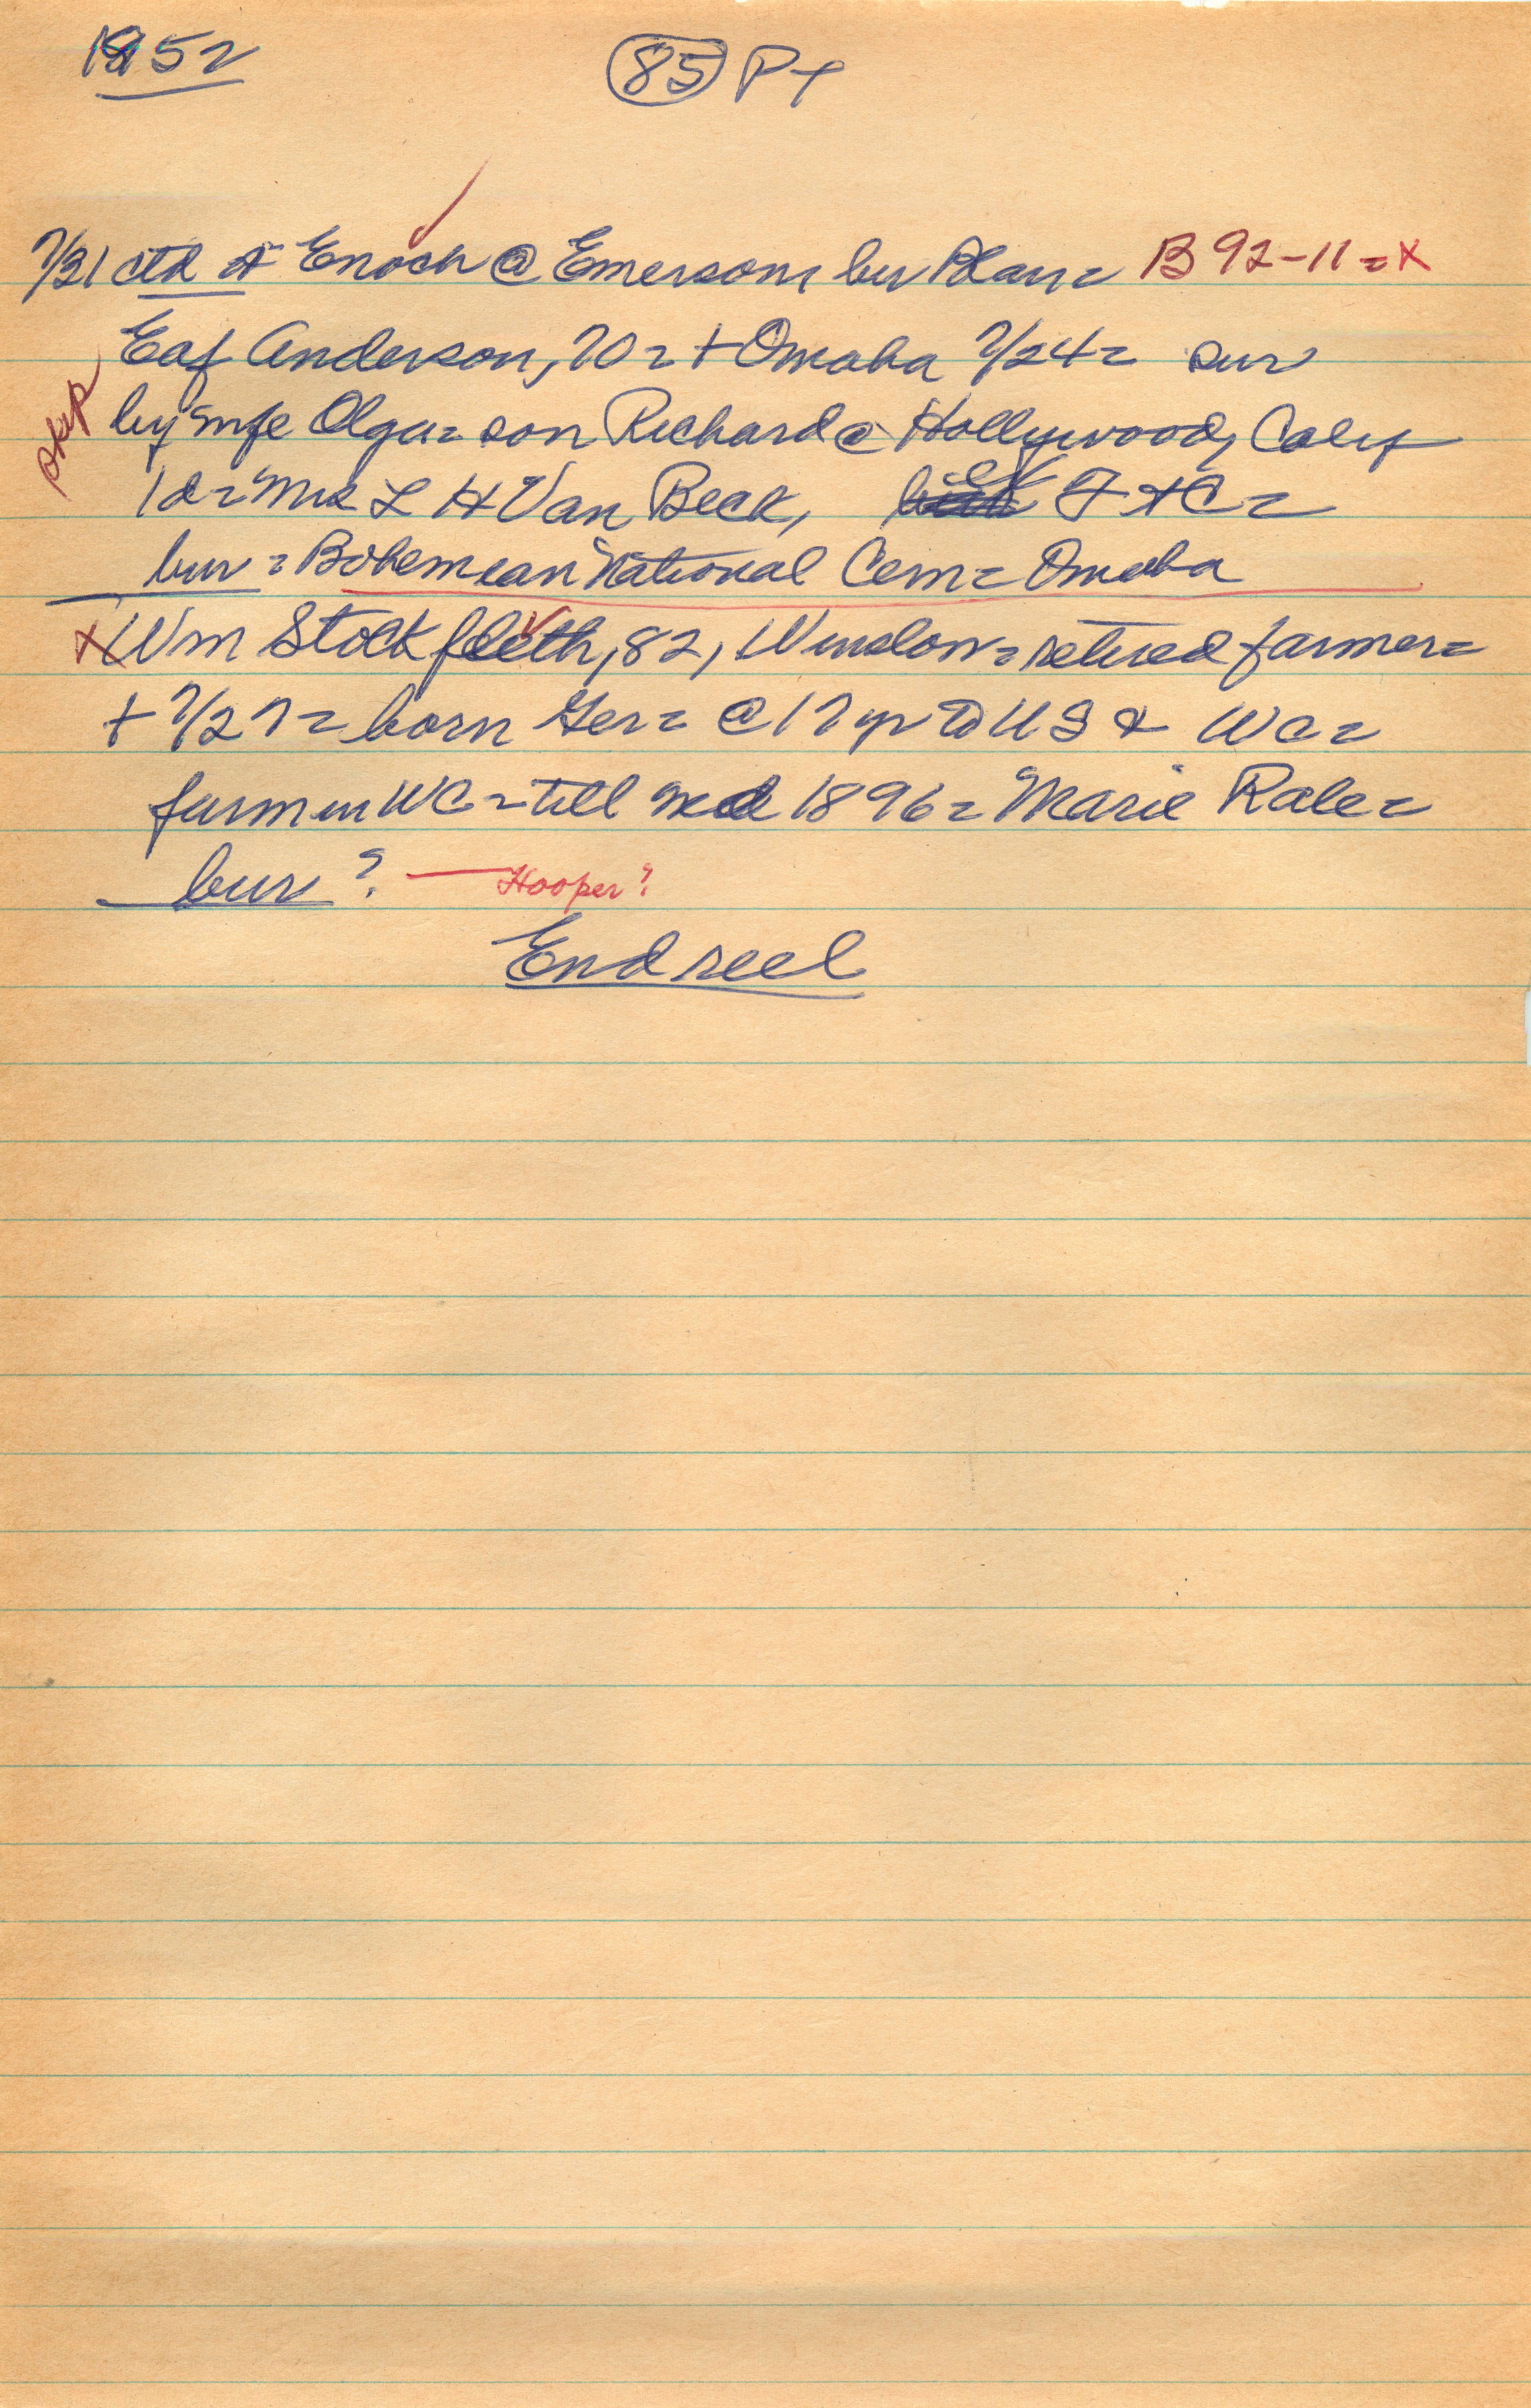 1952
85 Pt
7/31 ctd A Enoch @ Emerson bur Blair = B 92-11 = X
Eaf Anderson, 70 = + Omaha 7/24 = sur
skip
by wife Olga = son Richard @ Hollywood, Calif
1 d = Mrs L H Van Beck, F + C =
bur = Bohemian National Cem = Omaha
X Wm Stockfleth, 82, Winslow = retired farmer =
+ 7/27 = born Ger = @ 17 yr to US & WC =
farm in WC = till md 1896 = Marie Rale =
bur ? — Hooper?
End reel